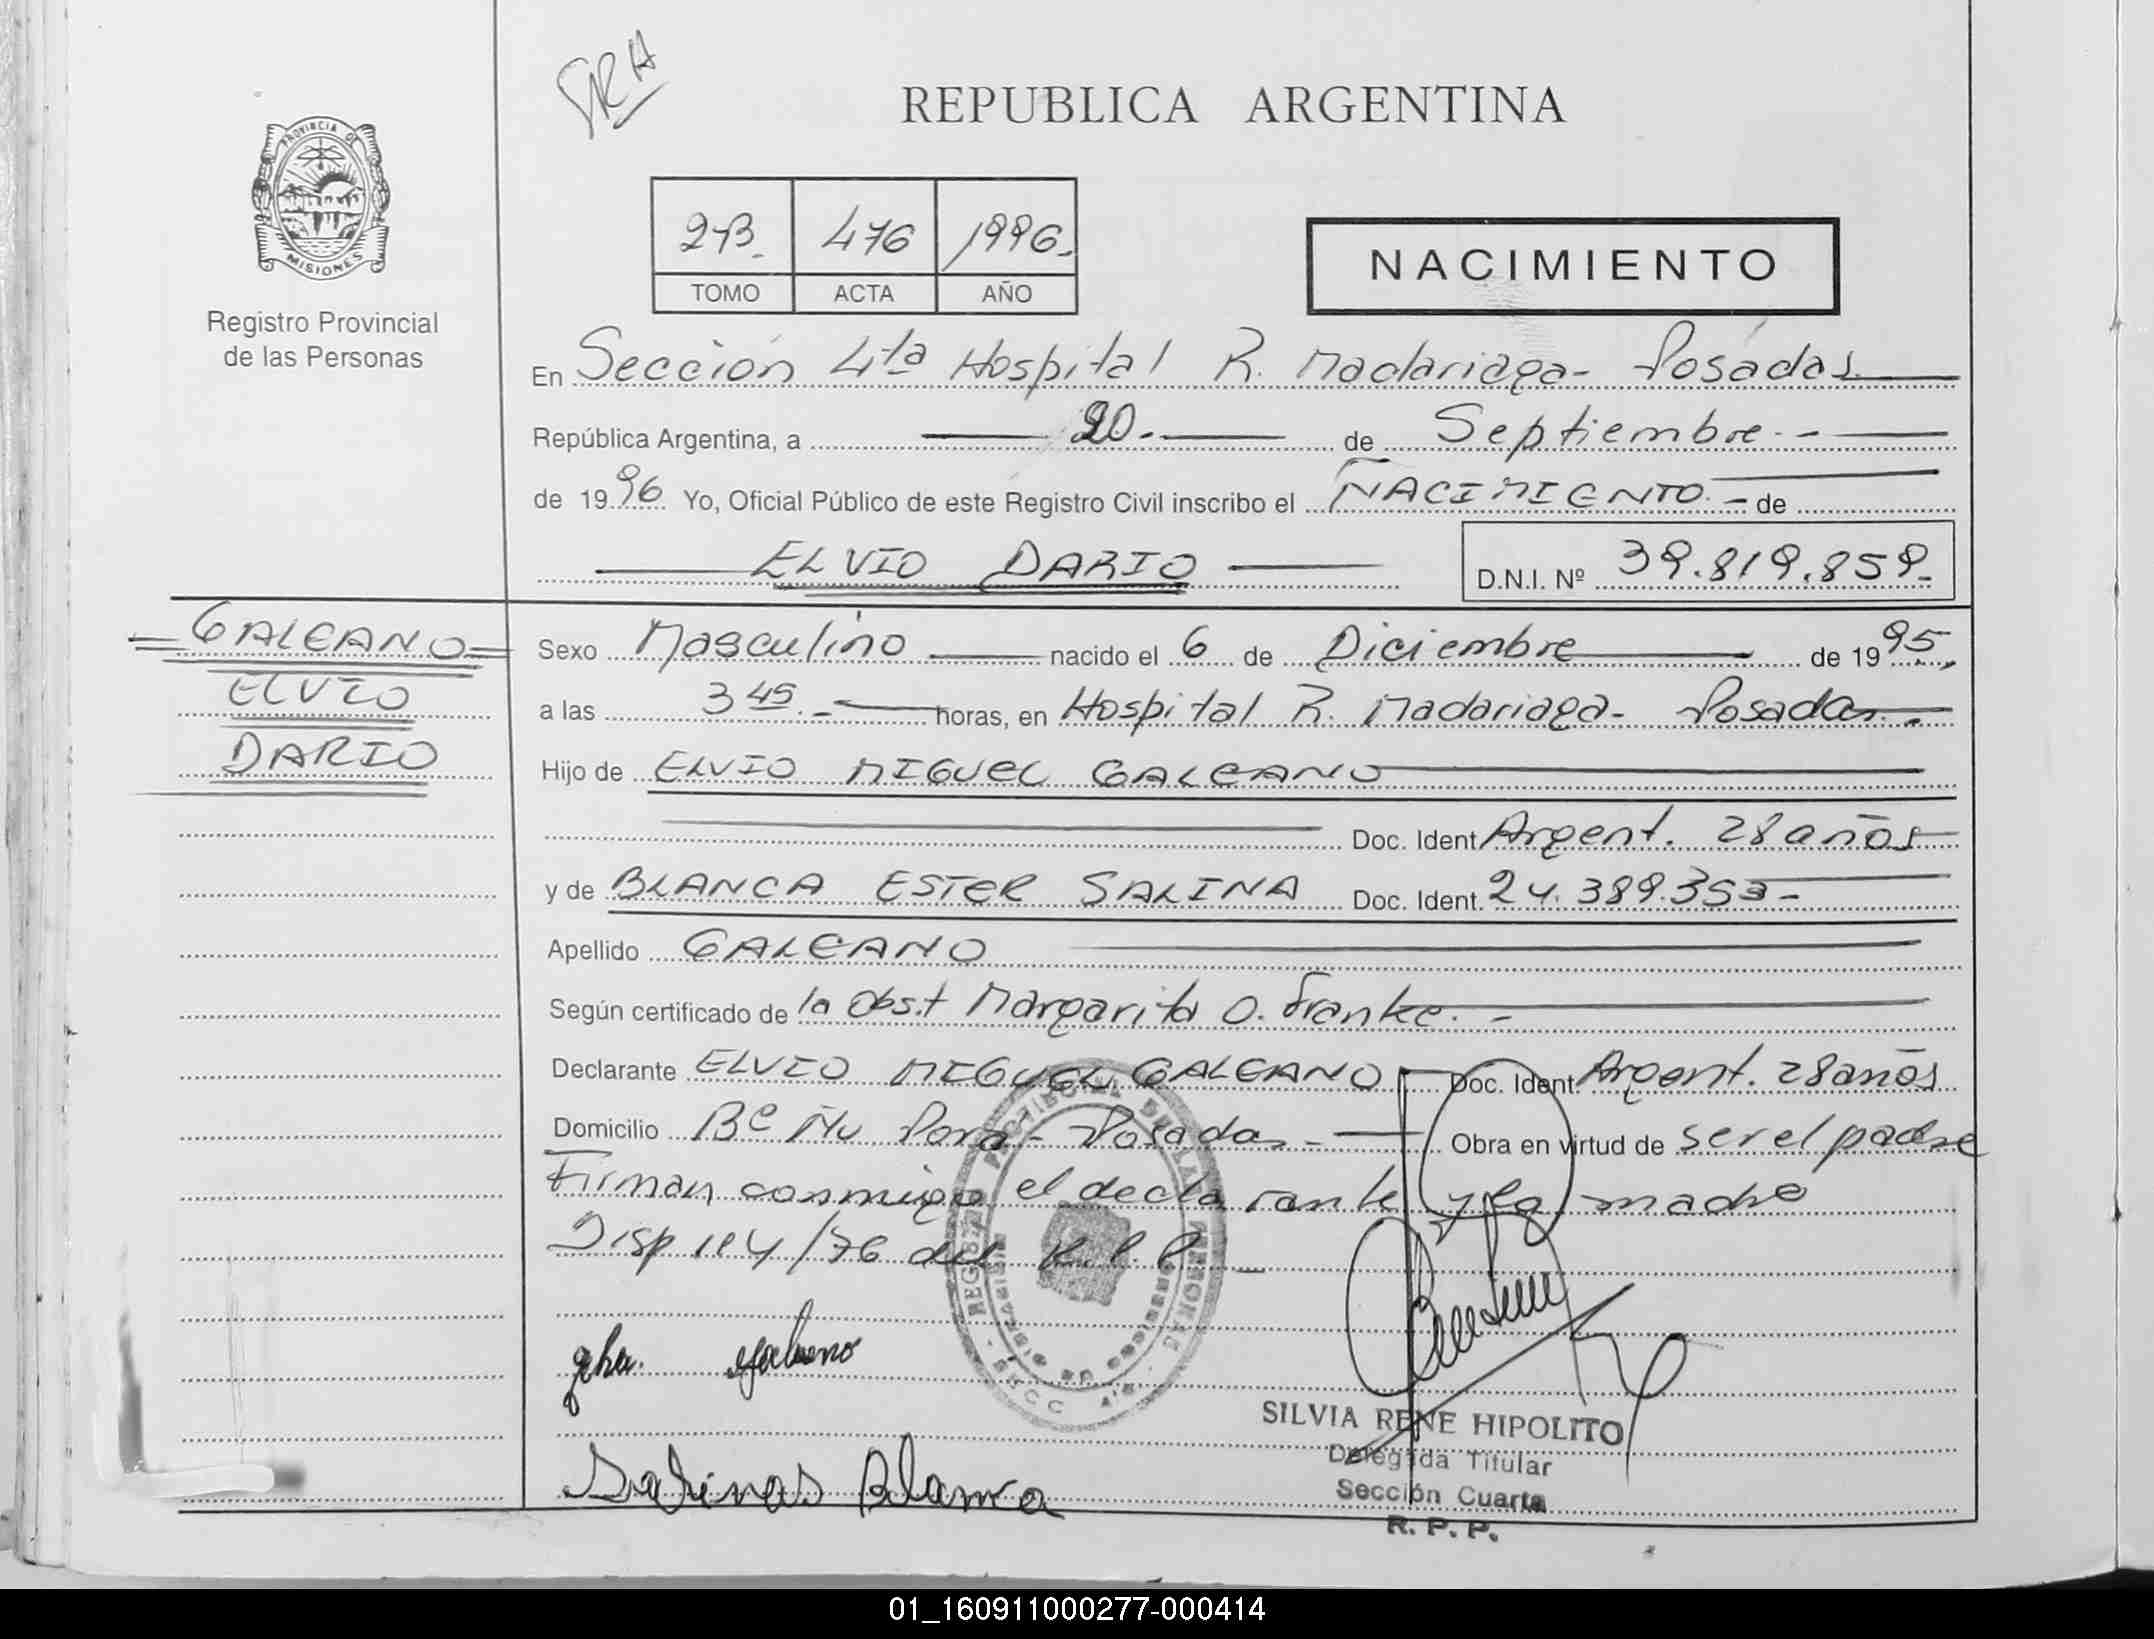 SRH
REPUBLICA ARGENTINA
PROVINCIA DE
MISIONES
Registro Provincial
de las Personas
2-B- 476 1996-
TOMO ACTA AÑO
NACIMIENTO
En Sección 4ta Hospital R. Madariaga- Posadas
República Argentina, a 20.- de Septiembre.-
de 1996 Yo, Oficial Público de este Registro Civil inscribo el NACIMIENTO.- de
ELVIO DARIO
D.N.I. Nº 39.819.859-
GALEANO
ELVIO
DARIO
Sexo Masculino nacido el 6 de Diciembre de 1995,
a las 3 45.- horas, en Hospital R. Madariaga- Posadas.
Hijo de ELVIO MIGUEL GALEANO
Doc. Ident Argent. 28 años
y de BLANCA ESTER SALINA Doc. Ident. 24.389.353-
Apellido GALEANO
Según certificado de la Obst Margarita O. Franke.-
Declarante ELVIO MIGUEL GALEANO Doc. Ident. Argent. 28 años
Domicilio Bº Ñu Pora- Posadas- Obra en virtud de ser el padre
Firman conmigo el declarante y la madre
Disp 114/76 del R.P.P-
Galeano
Salinas Blanca
SILVIA RENE HIPOLITO
Delegada Titular
Sección Cuarta
R. P. P.
01_160911000277-000414